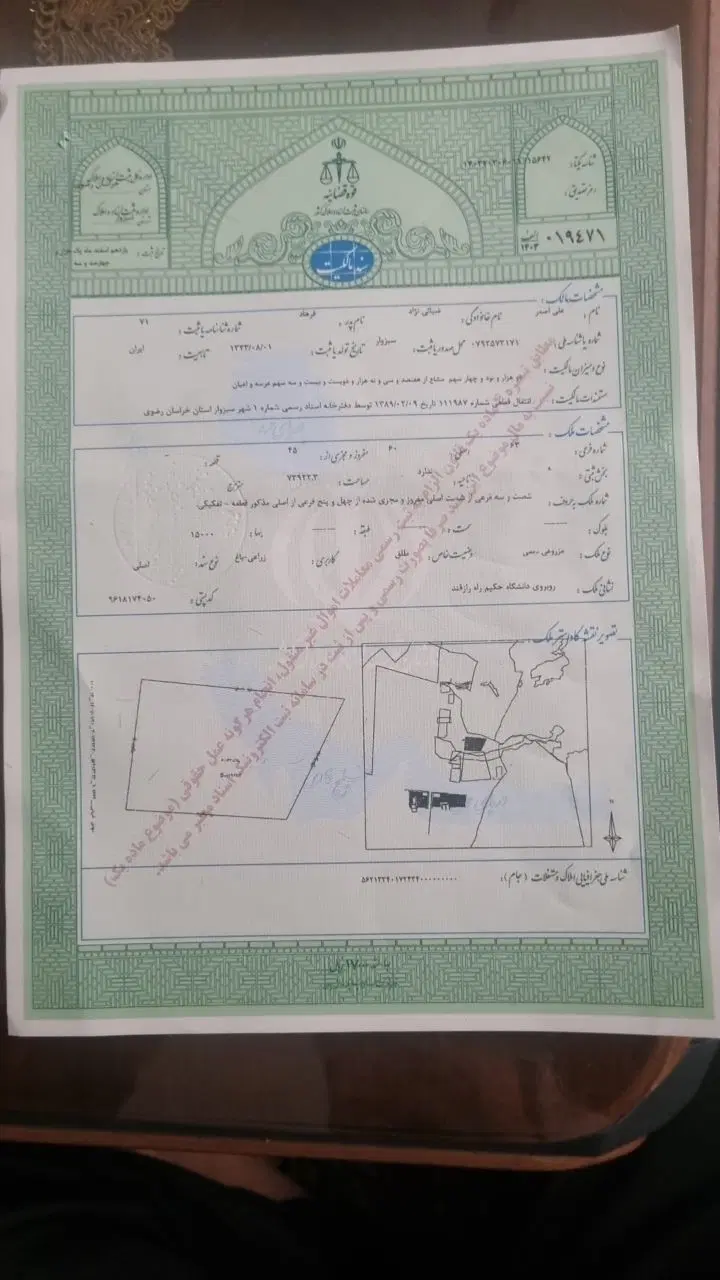 قوه قضائیه
سازمان ثبت اسناد و املاک کشور
سند مالکیت
شناسه یکتا:
دفتر تصدیق:
۰۱۹۴۷۱ الف ۱۴۰۳
تاریخ ثبت: یازدهم اسفند ماه یک هزار و چهارصد و سه
مشخصات مالک:
نام: علی اصغر نام خانوادگی: ضیائی نژاد نام پدر: فرهاد شماره شناسنامه یا ثبت: ۷۱
شماره یا شناسه ملی: ۰۷۹۲۵۷۳۱۷۱ محل صدور یا ثبت: سبزوار تاریخ تولد یا ثبت: ۱۳۳۳/۰۸/۰۱ تابعیت: ایران
نوع و میزان مالکیت: هزار و نود و چهار سهم مشاع از هفتصد و سی و نه هزار و دویست و بیست و سه سهم عرصه و اعیان
مستندات مالکیت: انتقال قطعی شماره ۱۱۱۹۸۷ تاریخ ۱۳۸۹/۰۲/۰۹ توسط دفترخانه اسناد رسمی شماره ۱ شهر سبزوار استان خراسان رضوی
مشخصات ملک:
شماره فرعی: ۶۳ ۶۰ مفروز و مجزی از: ۴۵ قطعه:
بخش ثبتی: ندارد مساحت: ۷۳۹۲۲.۳
شماره ملک به حروف: شصت و سه فرعی از شصت اصلی مفروز و مجزی شده از چهل و پنج فرعی از اصلی مذکور قطعه - تفکیکی
بلوک: سمت: طبقه: بها: ۱۵۰۰۰
نوع ملک: مزروعی - وضعیت خاص: طلق کاربری: زراعی-باغ نوع سند: اصلی
نشانی ملک: روبروی دانشگاه حکیم راه رازقند کد پستی: ۹۶۱۸۱۷۴۰۵۰
تصویر نقشه کاداستر ملک:
مطابق تبصره ماده یک قانون الزام به ثبت رسمی معاملات اموال غیر منقول، انجام هر گونه عمل حقوقی (موضوع ماده یک)
نسبت به مال موضوع این سند صرفا بصورت رسمی و پس از ثبت در سامانه ثبت الکترونیک اسناد معتبر می باشد.
شناسه ملی جغرافیایی املاک و مستغلات (جام):